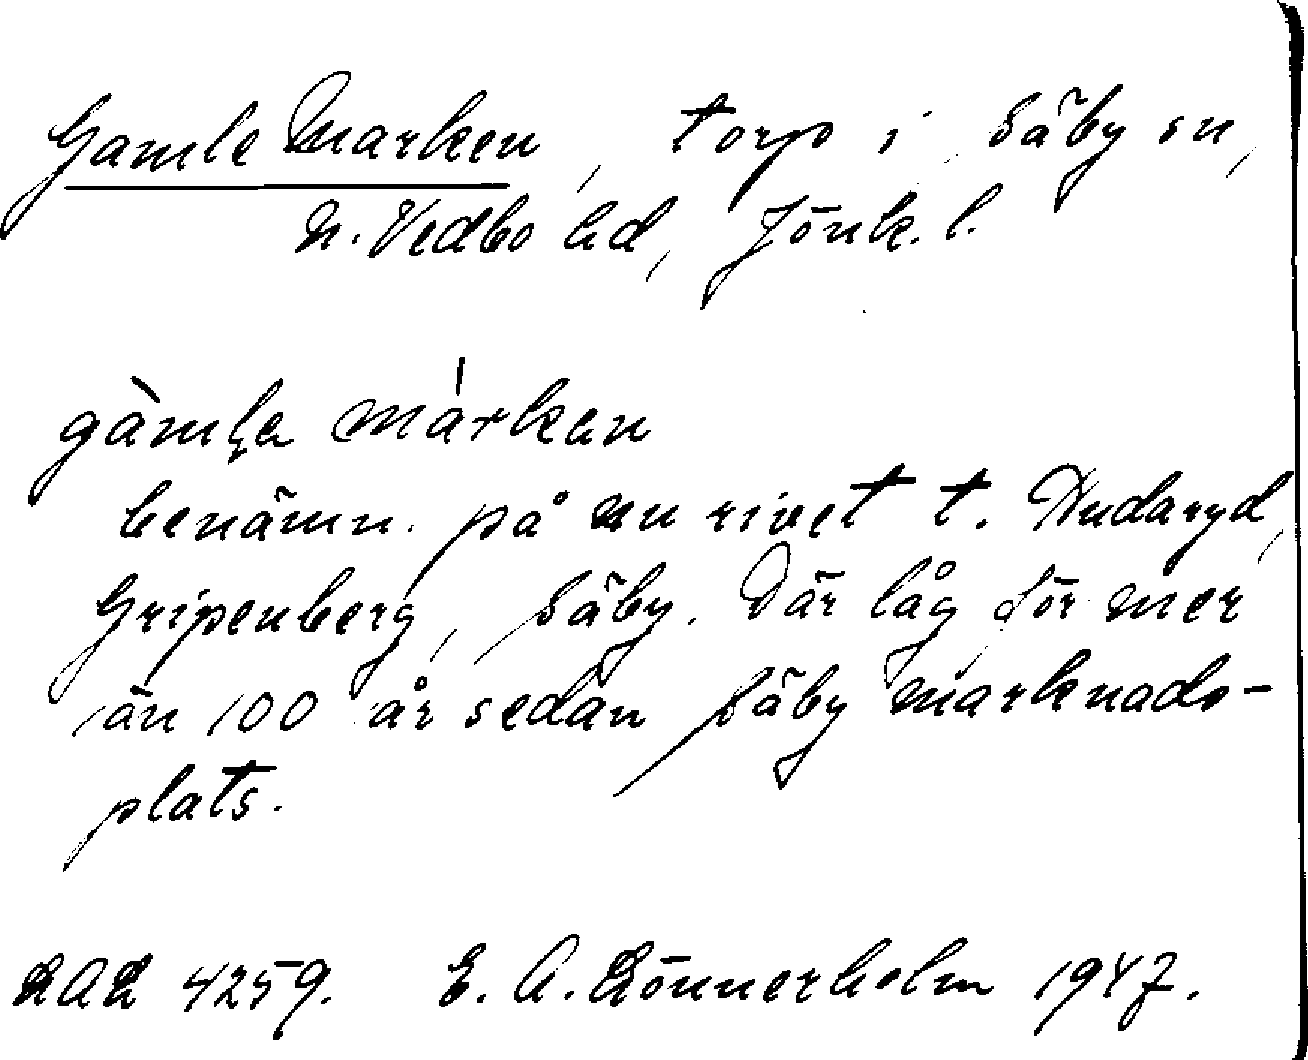 Gamle Marken, torp i Säby sn,
N. Vedbo hd, Jönk. l.
gàmḷa márkan
benämn. på nu rivet t. Nudaryd,
Gripenberg, Säby. Där låg för mer
än 100 år sedan Säby marknads-
plats.
LAL 4259. E. A. Lönnerholm 1947.